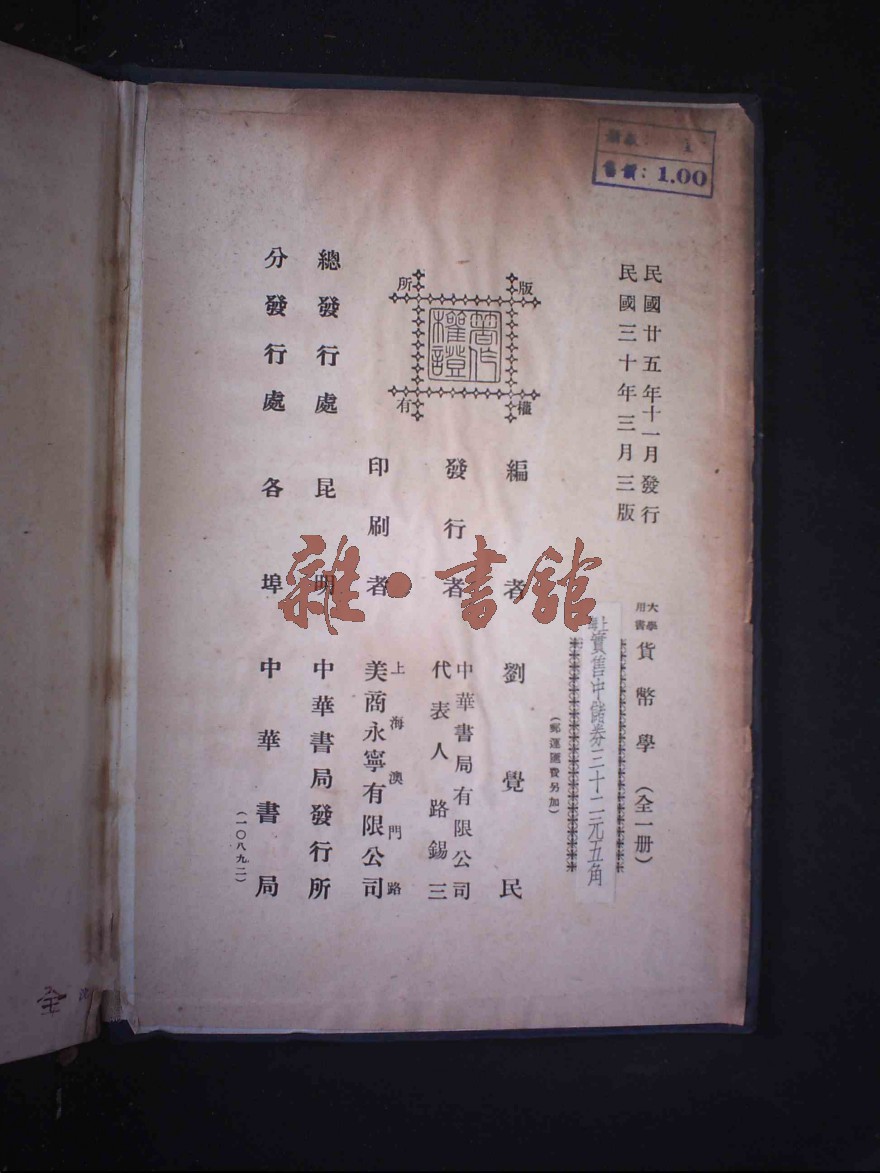 售價：1.00
民國廿五年十一月發行
民國三十年三月三版
大學用書 貨幣學（全一册）
實售中儲券三十二元五角
（郵運匯費另加）
版權所有
著作權證
編者 劉覺民
發行者 中華書局有限公司
代表人 路錫三
印刷者 上海澳門路
美商永寧有限公司
總發行處 昆明 中華書局發行所
分發行處 各埠 中華書局
（一〇八九二）
雜·書館
全